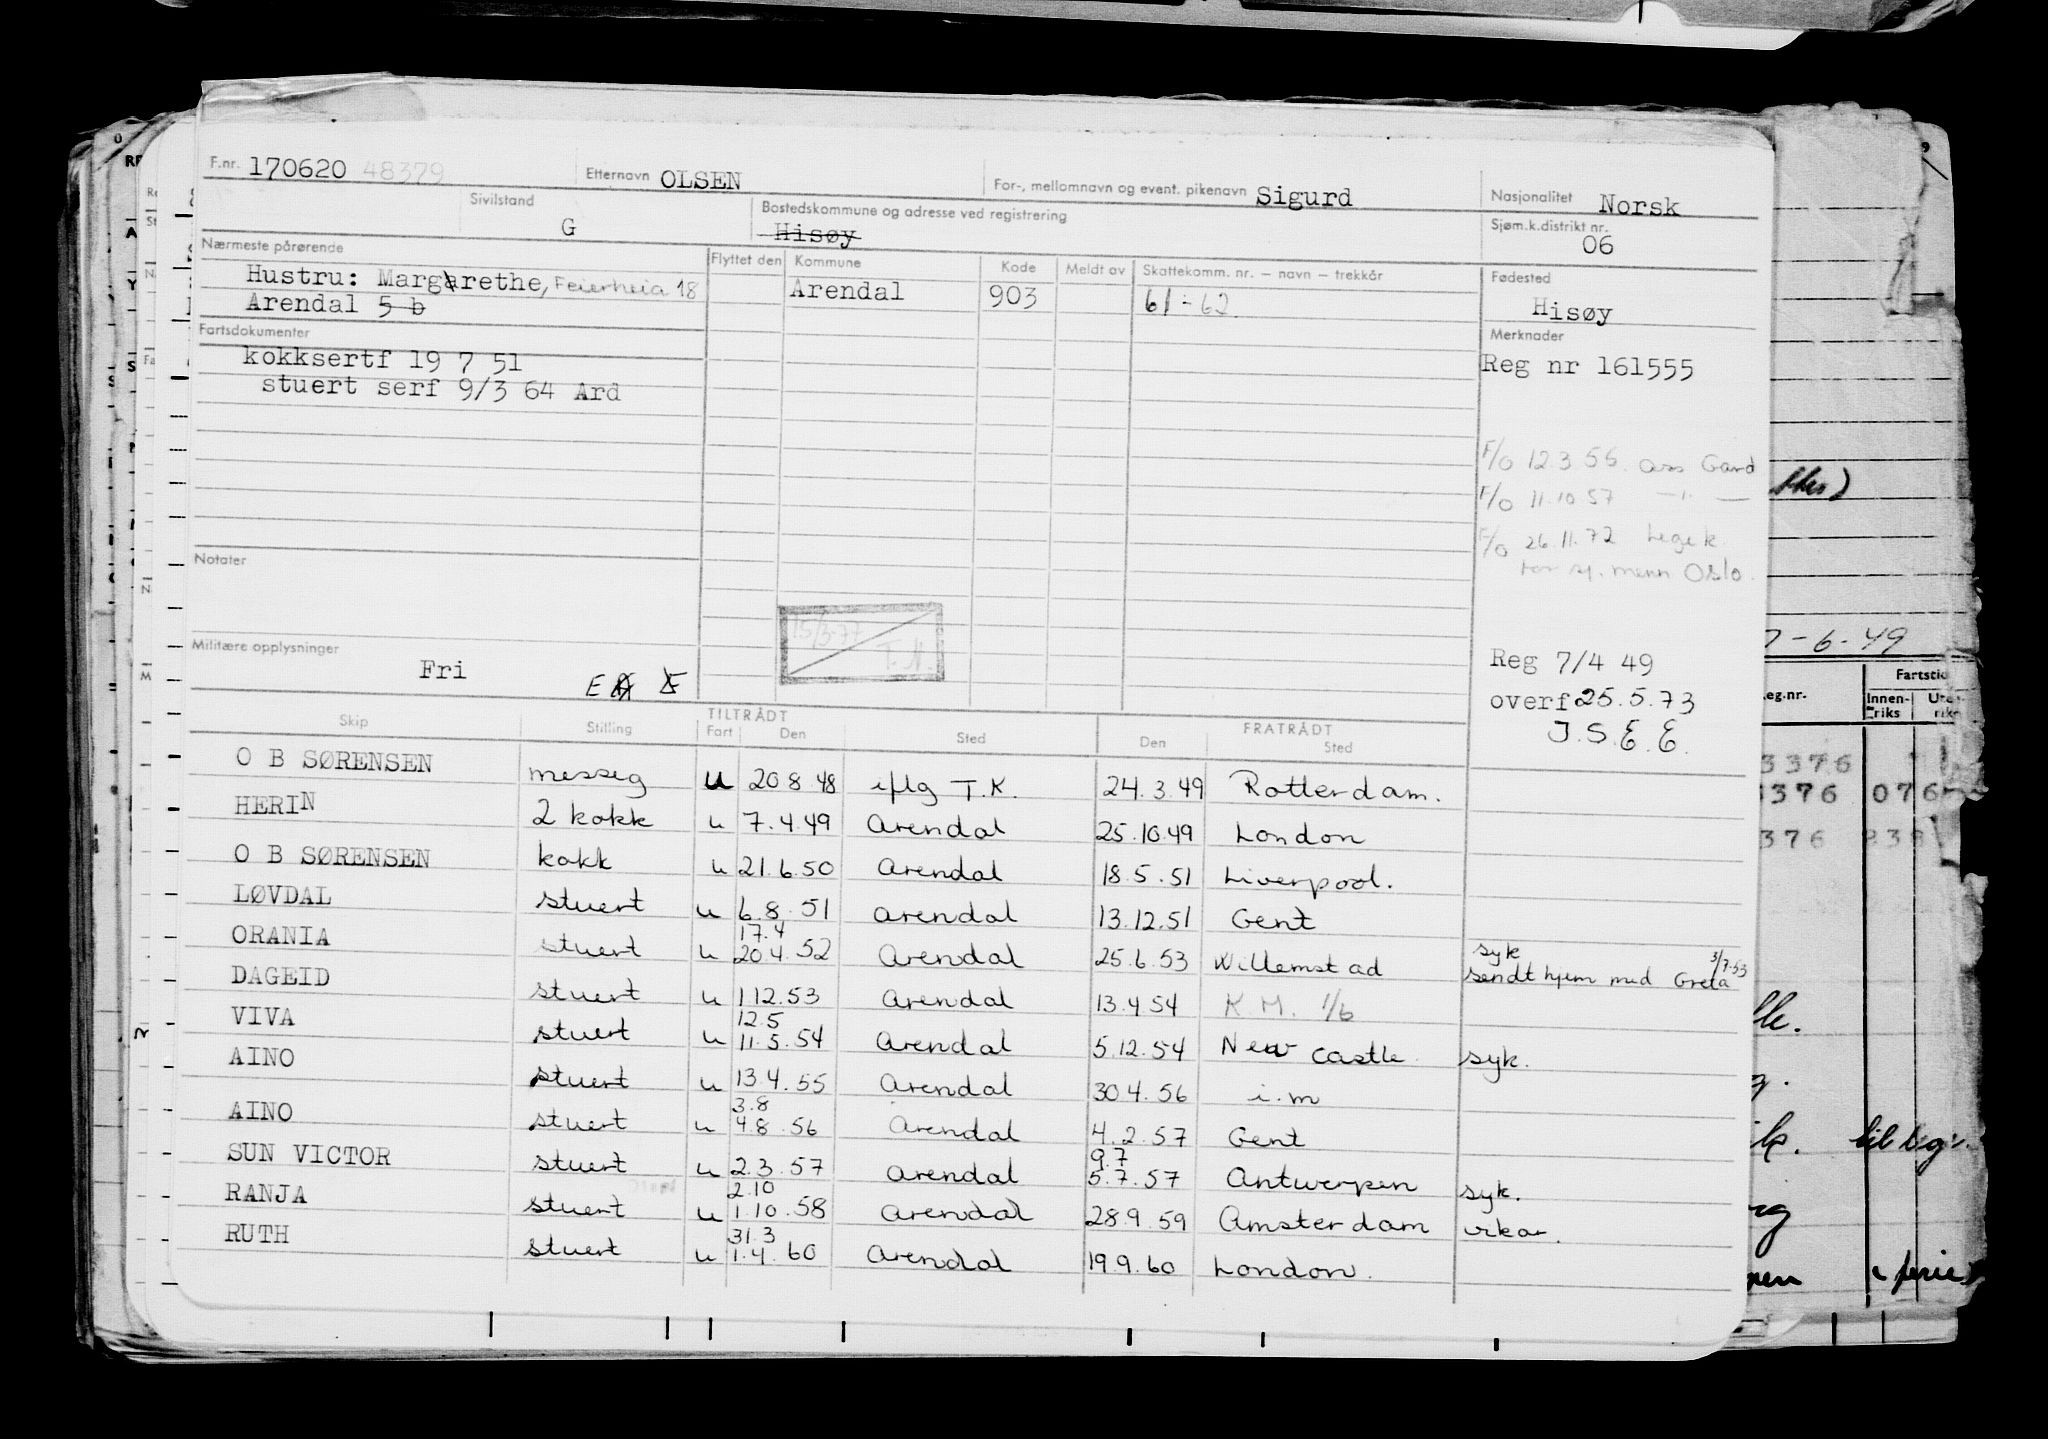 F.nr. 170620 48379 Etternavn OLSEN For-, mellomnavn og event. pikenavn Sigurd Nasjonalitet Norsk
Sivilstand G Bostedskommune og adresse ved registrering Hisøy Sjøm.k.distrikt nr. 06
Nærmeste pårørende Flyttet den Kommune Kode Meldt av Skattekomm. nr. — navn — trekkår Fødested
Hustru: Margarethe, Feierheia 18 Arendal 903 61-62 Hisøy
Arendal 5 b
Fartsdokumenter Merknader
kokksertf 19 7 51 Reg nr 161555
stuert serf 9/3 64 Ard
F/O 12.3 56. ass Gard
F/O 11.10 57 —"—
F/O 26.11.72 Legek.
for sj. menn Oslo.
Notater
15/3-77
T.N.
Militære opplysninger Fri E
Reg 7/4 49
overf 25.5.73
J.S.E.E.
TILTRÅDT FRATRÅDT
Skip Stilling Fart Den Sted Den Sted
O B SØRENSEN messeg u 20 8 48 iflg T.K. 24.3.49 Rotterdam.
HERIN 2 kokk u 7.4.49 Arendal 25.10.49 London
O B SØRENSEN kokk u 21.6.50 Arendal 18.5.51 Liverpool.
LØVDAL stuert u 6.8.51 Arendal 13.12.51 Gent
17.4
ORANIA stuert u 20.4.52 Arendal 25.6.53 Willemstad syk
sendt hjem med Greta 3/7.53
DAGEID stuert u 1.12.53 Arendal 13.4.54 K M. 1/6
12.5
VIVA stuert u 11.5.54 Arendal 5.12.54 New castle. syk.
AINO stuert u 13.4.55 Arendal 30 4.56 i.m
3.8
AINO stuert u 4.8.56 Arendal 4.2.57 Gent
9.7
SUN VICTOR stuert u 2.3.57 Arendal 5.7.57 Antwerpen syk.
2.10
RANJA stuert u 1.10.58 Arendal 28.9.59 Amsterdam vikar.
31.3
RUTH stuert u 1.4.60 Arendal 19.9.60 London.
7-6-49
eg.nr. Fartstid
Innen-
riks
3376
3376 076
376 838